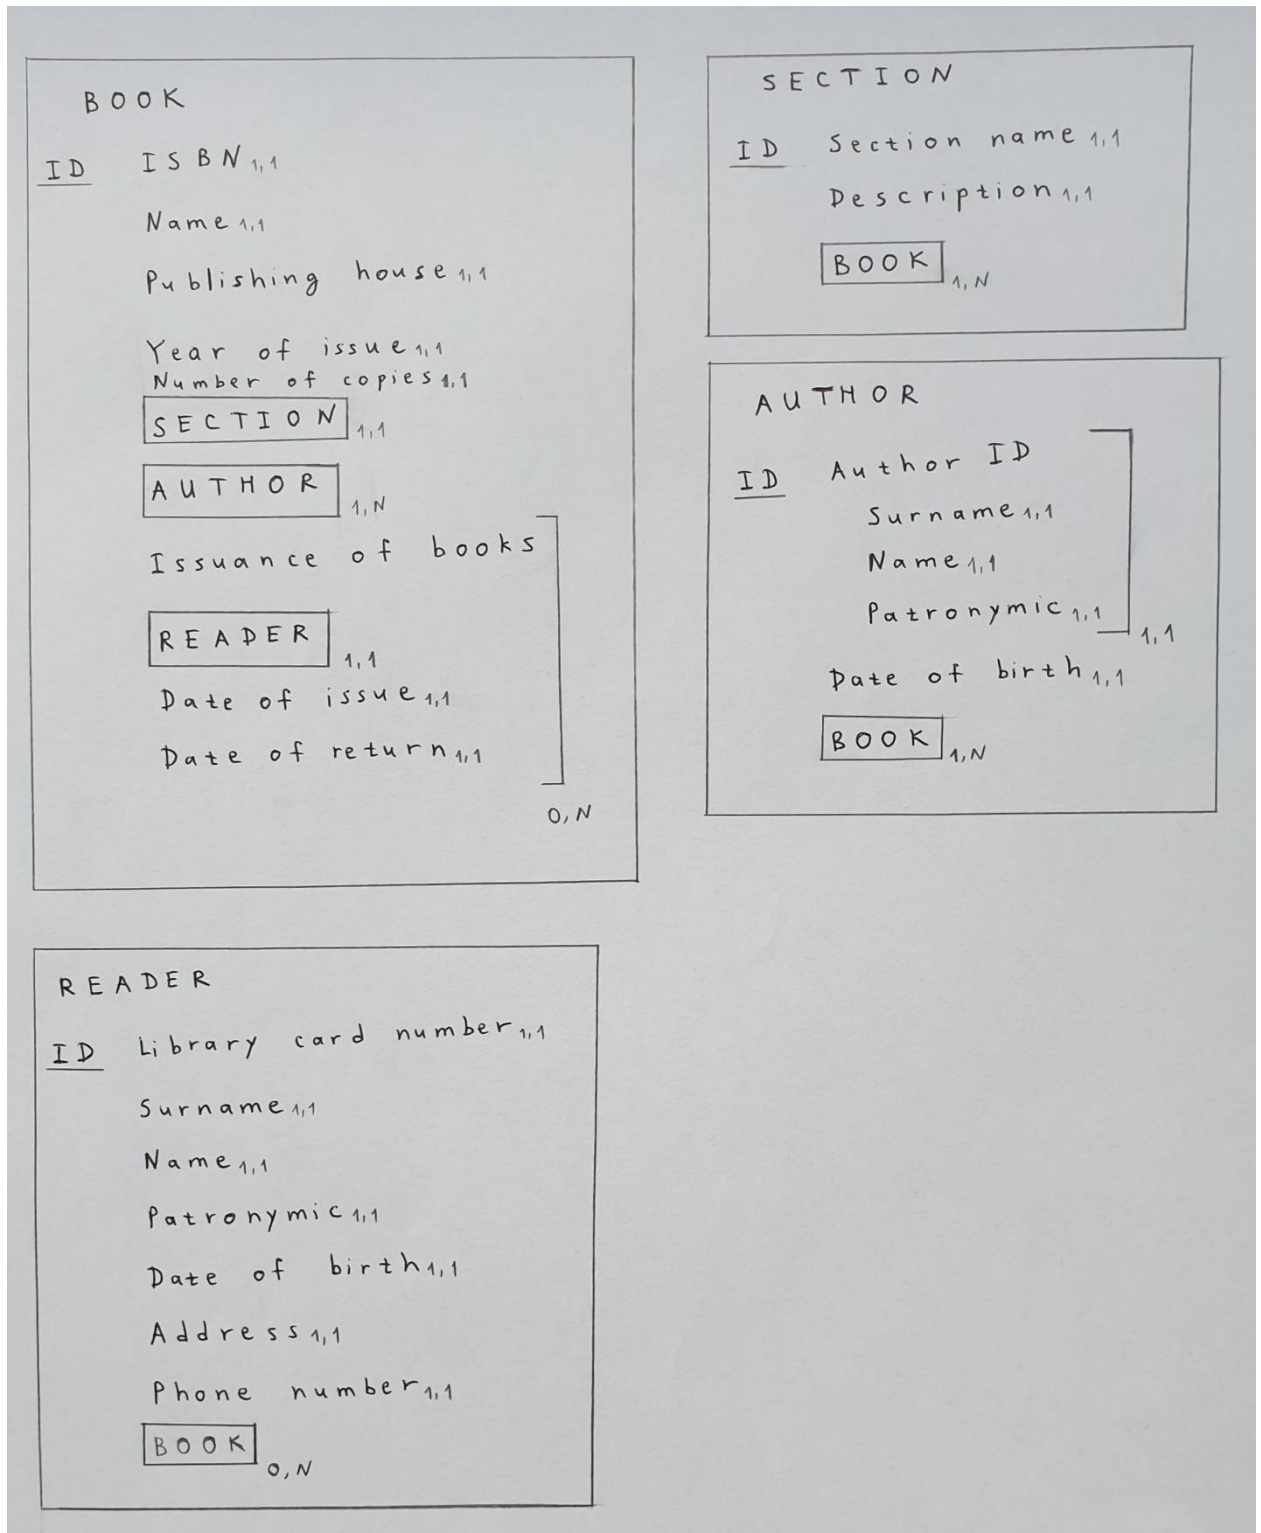 BOOK
ID ISBN 1,1
Name 1,1
Publishing house 1,1
Year of issue 1,1
Number of copies 1,1
SECTION 1,1
AUTHOR 1,N
Issuance of books
READER 1,1
Date of issue 1,1
Date of return 1,1
0,N
SECTION
ID Section name 1,1
Description 1,1
BOOK 1,N
AUTHOR
ID Author ID
Surname 1,1
Name 1,1
Patronymic 1,1
1,1
Date of birth 1,1
BOOK 1,N
READER
ID Library card number 1,1
Surname 1,1
Name 1,1
Patronymic 1,1
Date of birth 1,1
Address 1,1
Phone number 1,1
BOOK 0,N